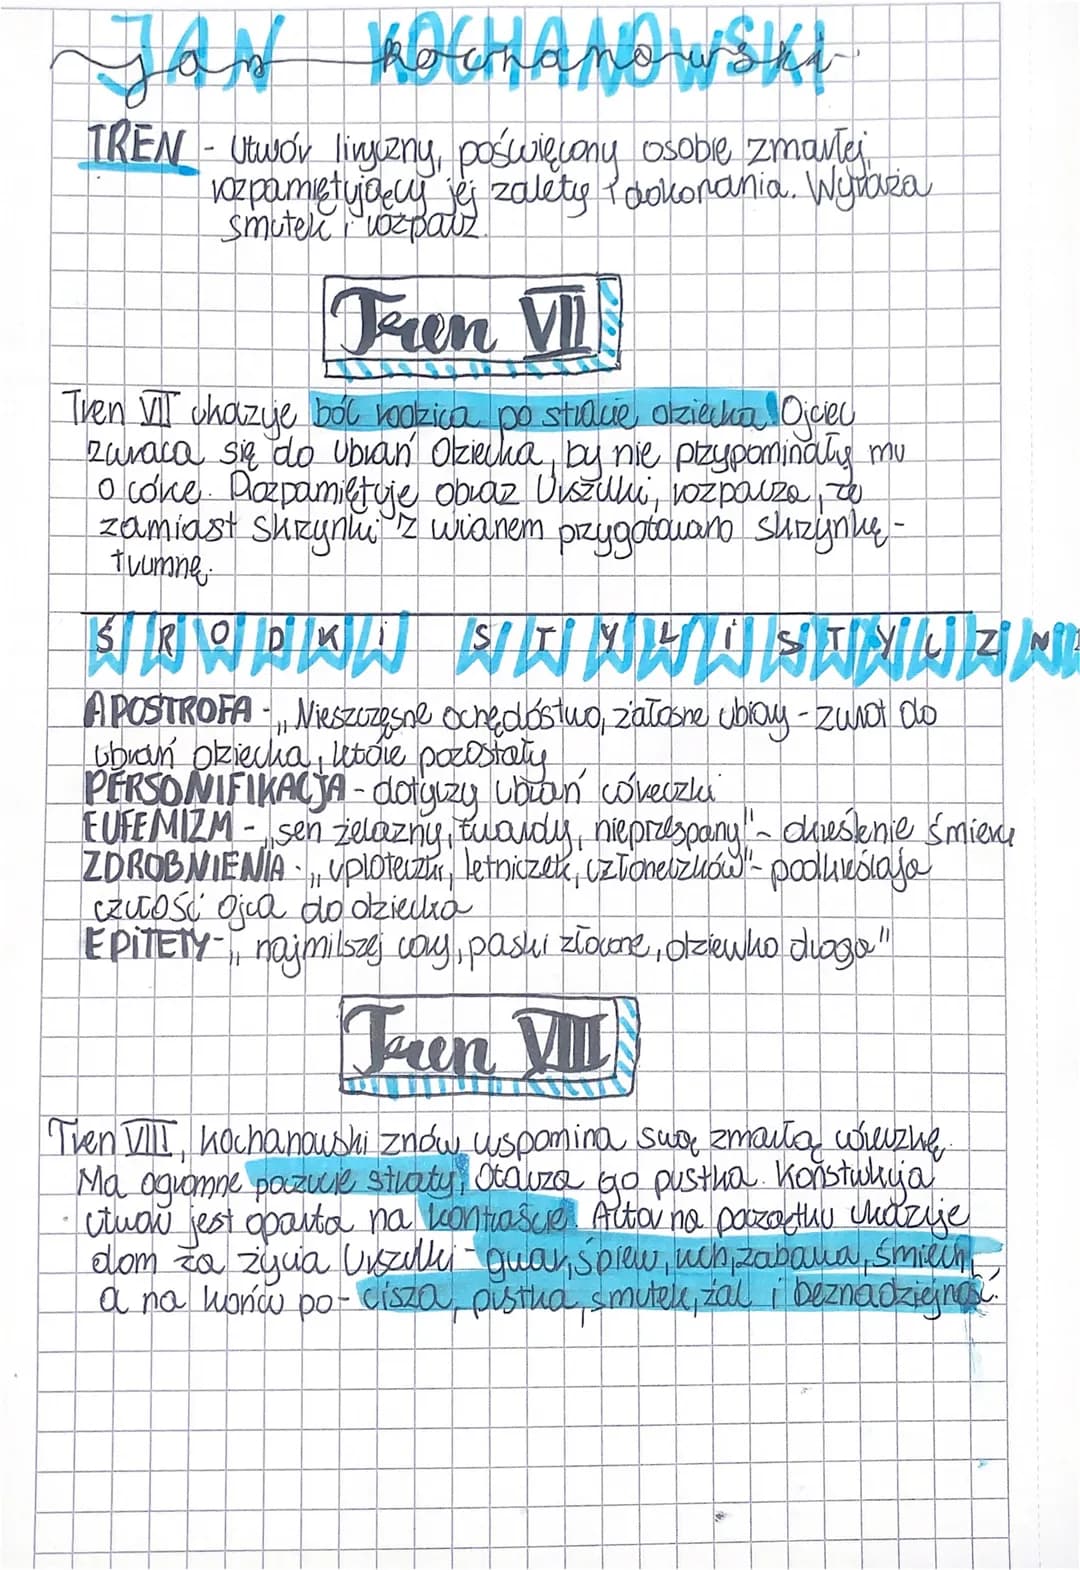 JAN KOCHANOWSKI
jan kochanowski
TREN - Utwór liryczny, poświęcony osobie zmarłej,
rozpamiętujący jej zalety i dokonania. Wyraża
smutek i rozpacz.
Tren VII
Tren VII ukazuje ból rodzica po stracie dziecka. Ojciec
zwraca się do ubrań dziecka, by nie przypominały mu
o córce. Rozpamiętuje obraz Urszulki, rozpacza, że
zamiast skrzynki z wianem przygotowano skrzynkę-
trumnę.
ŚRODKI STYLISTYCZN
APOSTROFA - „Nieszczęsne ochędóstwo, żałosne ubiory - zwrot do
ubrań dziecka, które pozostały
PERSONIFIKACJA - dotyczy ubrań córeczki
EUFEMIZM - „sen żelazny, twardy, nieprzespany" - określenie śmierci
ZDROBNIENIA - „uploteczki, letniczek, członeczków" - podkreślają
czułość ojca do dziecka
EPITETY - „najmilszej córy, paski złocone, dziewko droga"
Tren VIII
Tren VIII, Kochanowski znów wspomina swą zmarłą córeczkę.
Ma ogromne poczucie straty, Otacza go pustka. Konstrukcja
utworu jest oparta na kontraście. Autor na początku ukazuje
dom za życia Urszulki - gwar, śpiew, ruch, zabawa, śmiech,
a na końcu po - cisza, pustka, smutek, żal i beznadziejność.